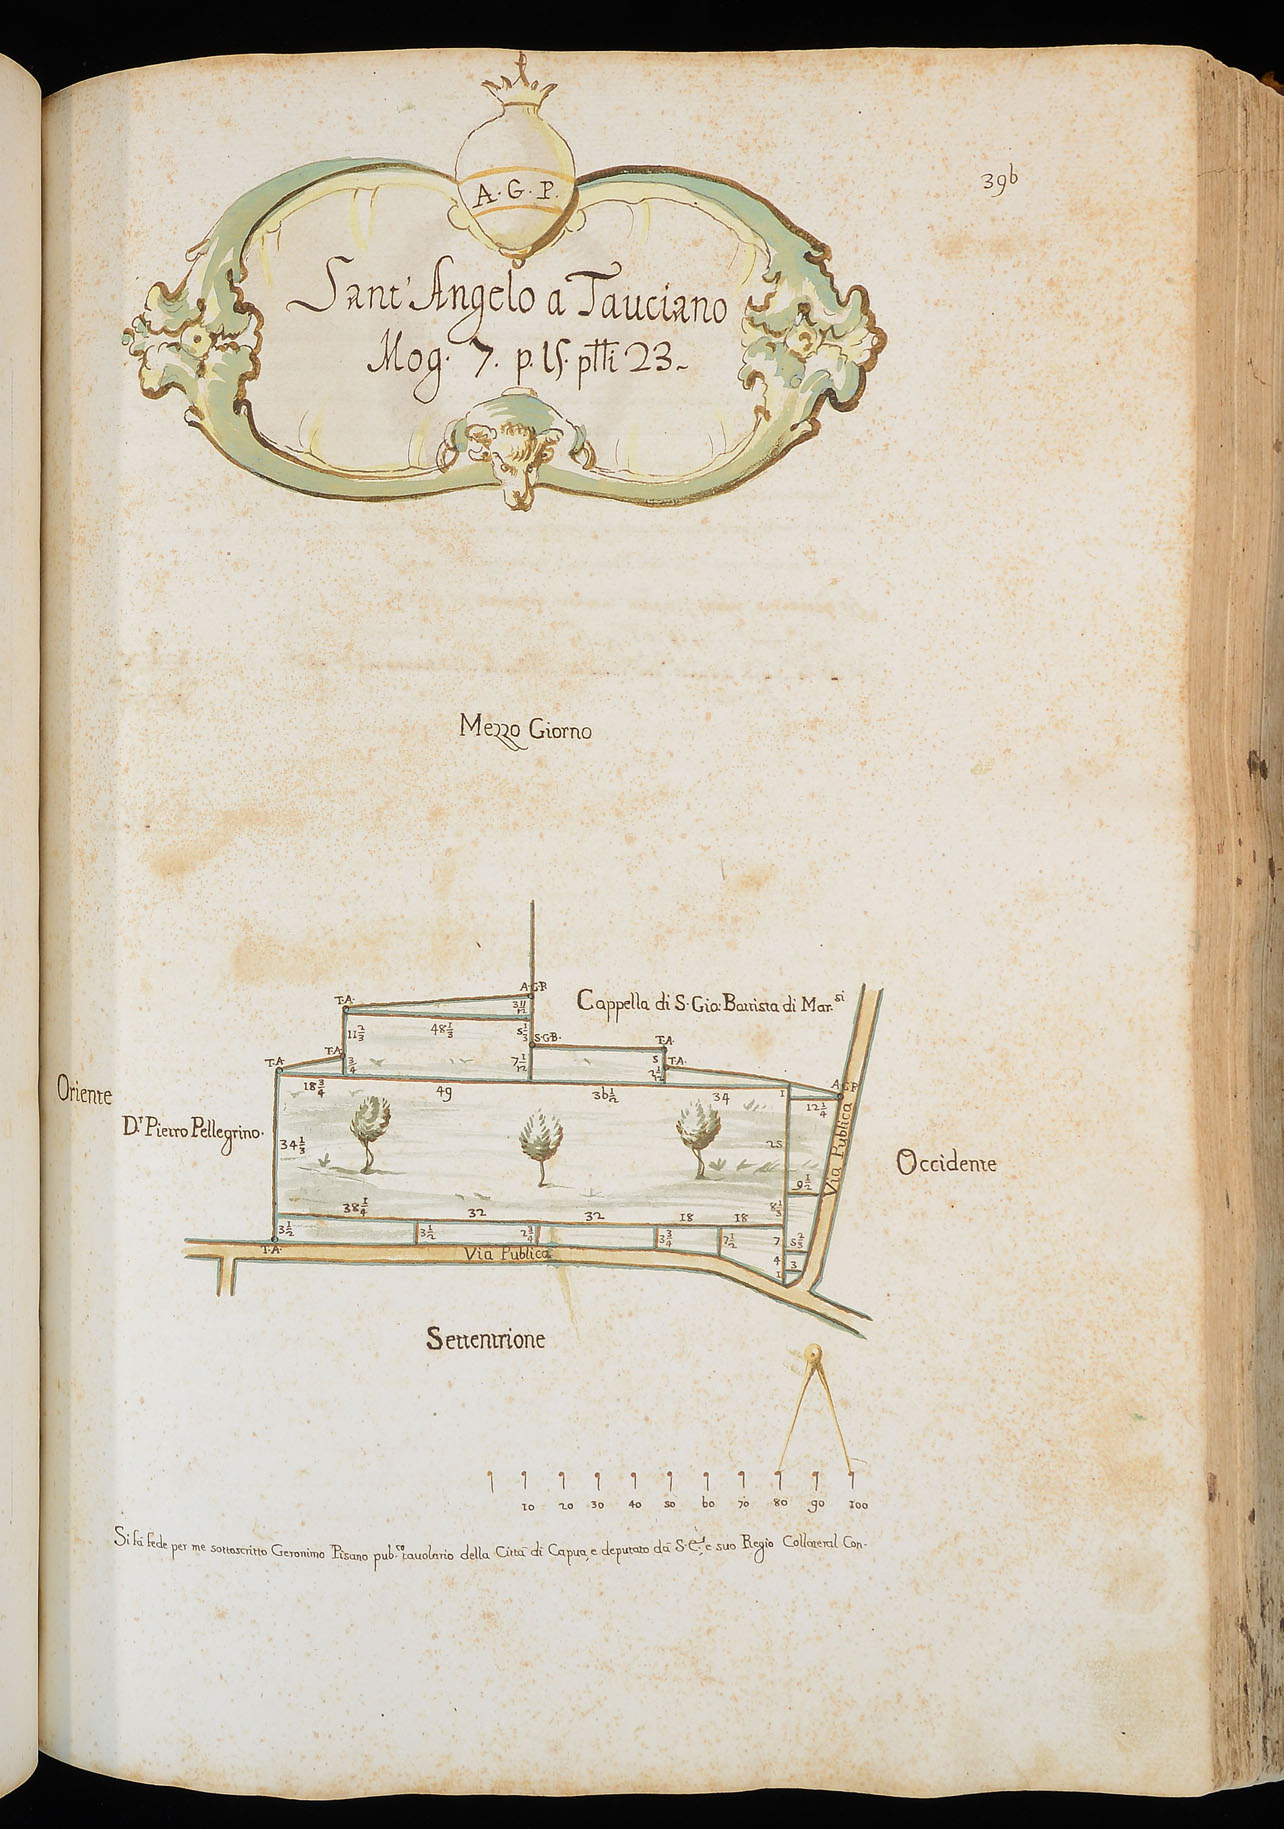 39b
A. G. P.
Sant' Angelo a Tauciano
Mog. 7. p. 15. ptti 23.
Mezzo Giorno
A.G.P.
T.A.
3 11/12
Cappella di S. Gio: Battista di Mar.si
11 2/3
48 1/3
5 1/3
S.G.B.
T.A.
T.A.
T.A.
3/4
7 1/12
5
T.A.
2 1/12
18 3/4
49
36 1/2
34
1
A.G.P.
12 1/4
Oriente
D.r Pietro Pellegrino.
34 1/3
25
Via Publica
Occidente
9 1/2
38 1/4
32
32
18
18
8 1/3
3 1/2
3 1/2
2 3/4
3 3/4
7 1/2
7
5 2/3
T.A.
Via Publica
4
3
1
Settentrione
10 20 30 40 50 60 70 80 90 100
Si fà fede per me sottoscritto Geronimo Pisano pub.co tavolario della Città di Capua, e deputato dà S. E., e suo Regio Collateral Con-